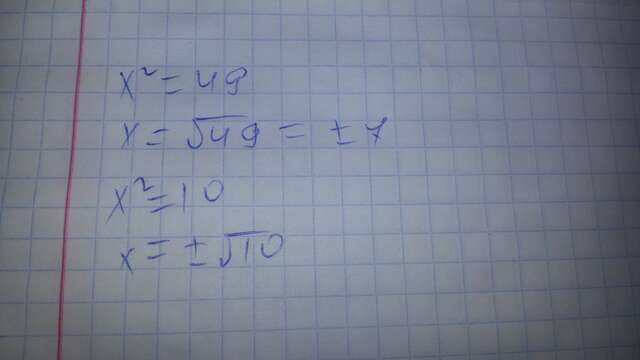 x² = 49
x = √49 = ±7
x² = 10
x = ±√10